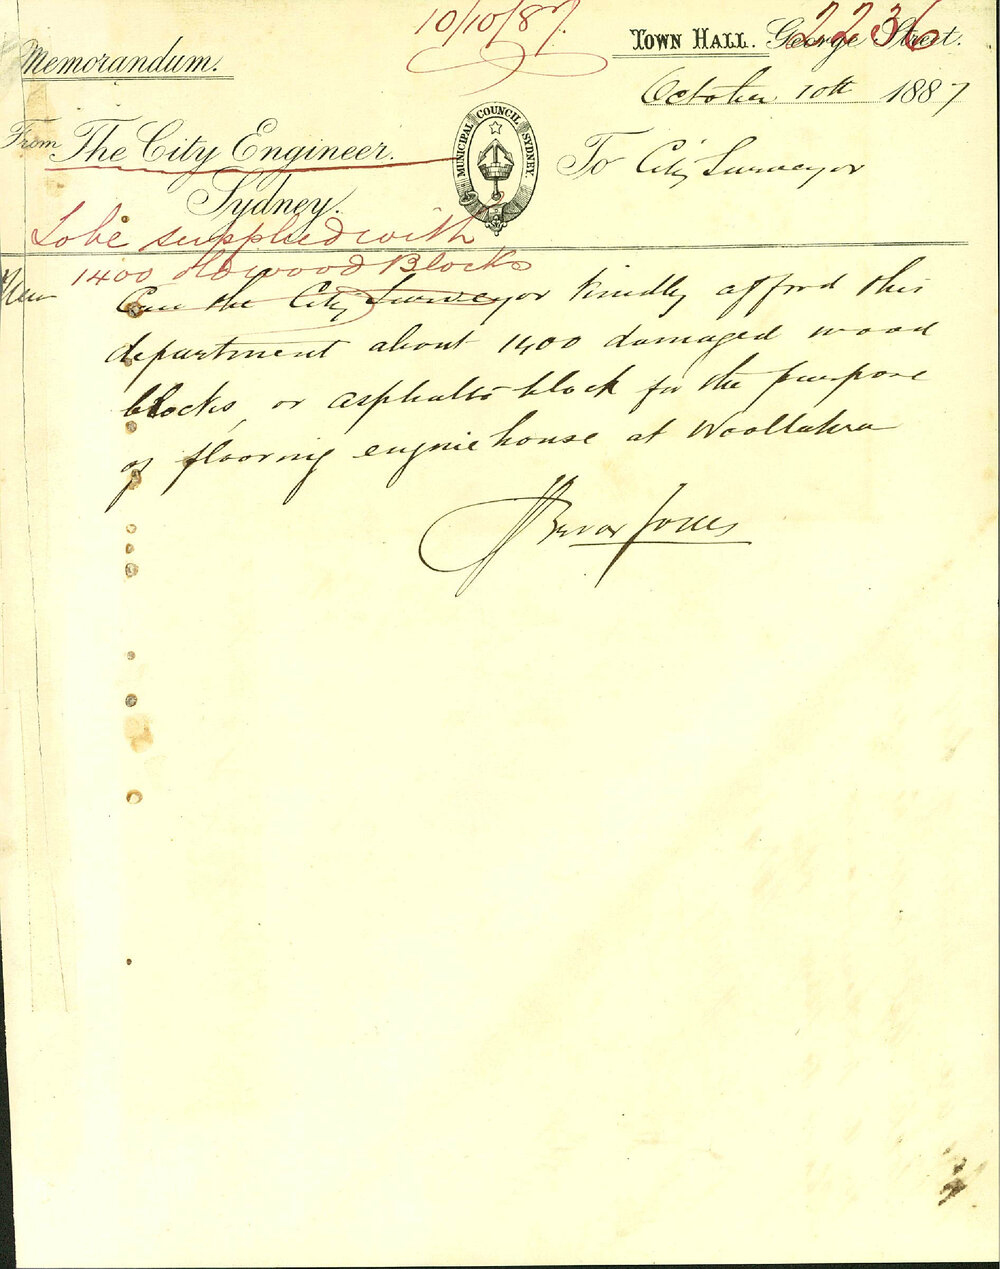 10/10/87.
2236
Memorandum.
TOWN HALL. George Street.
October 10th 1887
From The City Engineer.
Sydney.
MUNICIPAL COUNCIL SYDNEY.
To City Surveyor
To be supplied with
1400 old wood Blocks
Can the City Surveyor kindly afford this
department about 1400 damaged wood
blocks, or asphalte block for the purpose
of flooring engine house at Woollahra
Jones